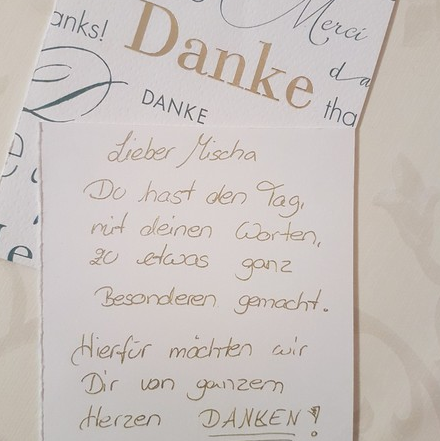 anks!
Merci
Danke
da
DANKE
tha
Lieber Mischa
Du hast den Tag,
mit deinen Worten,
zu etwas ganz
Besonderen gemacht.
Hierfür möchten wir
Dir von ganzem
Herzen DANKEN!